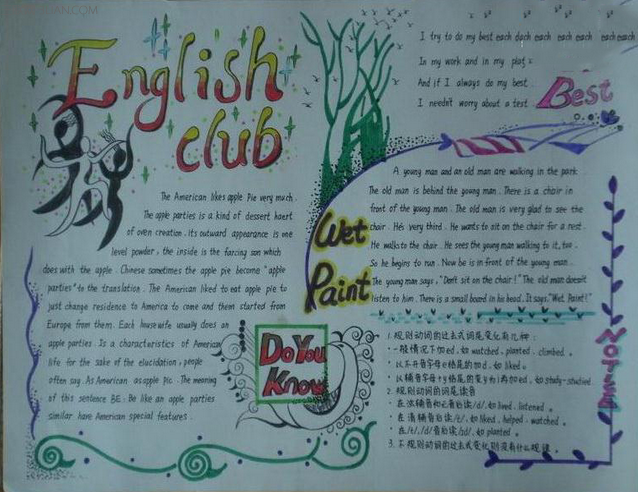 English
club
The American likes apple Pie very much.
The apple parties is a kind of dessert haert
of oven creation. Its outward appearance is one
level powder, the inside is the farcing son which
does with the apple. Chinese sometimes the apple pie become "apple
parties" to the translation. The American liked to eat apple pie to
just change residence to America to come and them started from
Europe from them. Each housewife usually does an
apple parties. Is a characteristics of American
life for the sake of the elucidation, people
often say. As American as apple pic. The meaning
of this sentence BE. Be like an apple parties
similar have American special features.
Do You
Know
I try to do my best each dach each each each each each
In my work and in my
And if I always do my best
I needn't worry about a test
Best
Wet
Paint
A young man and an old man are walking in the park.
The old man is behind the young man. There is a chair in
front of the young man. The old man is very glad to see the
chair. He's very third. He wants to sit on the chair for a rest.
He walks to the chair. He sees the young man walking to it, too.
So he begins to run. Now be is in front of the young man.
The young man says, "Don't sit on the chair!" The old man doesn't
listen to him. There is a small board in his head. It says, "Wet Paint!"
1. 规则动词的过去式词尾变化有几种:
·一般情况下加ed, 如 watched, planted, climbed。
·以不开音字母e结尾的加d, 如 liked。
·以辅音字母+y结尾的变y为i再加ed, 如 study-studied
2. 规则动词的词尾读音
·在浊辅音和元音后读/d/, 如 lived, listened。
·在清辅音后读/t/, 如 liked, helped, watched。
·在/t/, /d/音后读/id/, 如 planted。
3. 不规则动词的过去式变化则没有什么规律。